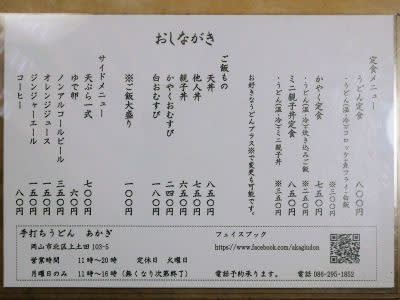 おしながき
定食メニュー
うどん定食 八〇〇円
・うどん(温・冷)コロッケと魚フライ・白飯
※三〇〇円
かやく定食 七五〇円
・うどん(温・冷)炊き込みご飯
※二五〇円
ミニ親子丼定食 八五〇円
・うどん(温・冷)ミニ親子丼
※三五〇円
お好きなうどんプラス※で変更も可能です。
ご飯もの
天丼 八五〇円
他人丼 七五〇円
親子丼 六五〇円
かやくおむすび 二四〇円
白おむすび 一八〇円
※ご飯大盛り 一〇〇円
サイドメニュー
天ぷら一式 七〇〇円
ゆで卵 六〇円
ノンアルコールビール 三五〇円
オレンジジュース 一五〇円
ジンジャーエール 一五〇円
コーヒー 八〇円
手打ちうどん あかぎ
岡山市北区上土田 103-5
営業時間 11時~20時 定休日 火曜日
月曜日のみ 11時~16時(無くなり次第終了)
フェイスブック
https://www.facebook.com/akagiudon
電話予約承ります。 電話 086-295-1852